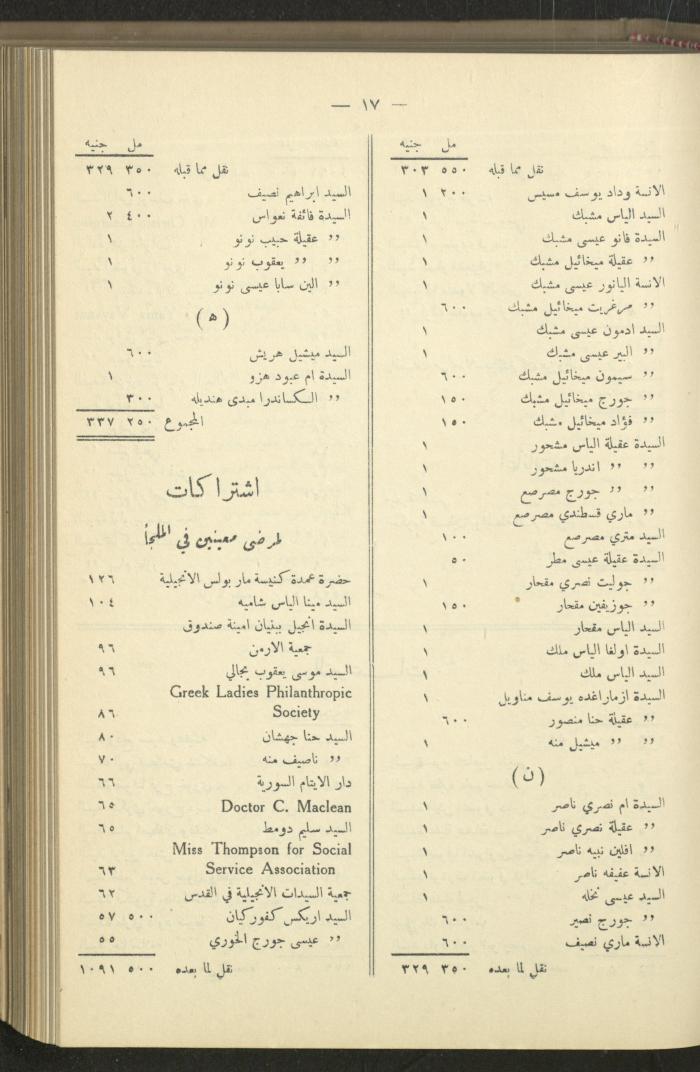 — ١٧ —
مل جنيه
نقل مما قبله ٥٥٠ ٣٠٣
الانسة وداد يوسف مسيس ٢٠٠ ١
السيد الياس مشبك ١
السيدة فانو عيسى مشبك ١
,, عقيلة ميخائيل مشبك ١
الانسة اليانور عيسى مشبك ١
,, مرغريت ميخائيل مشبك ٦٠٠
السيد ادمون عيسى مشبك ١
,, البير عيسى مشبك ١
,, سيمون ميخائيل مشبك ٦٠٠
,, جورج ميخائيل مشبك ١٥٠
,, فؤاد ميخائيل مشبك ١٥٠
السيدة عقيلة الياس مشحور ١
,, ,, اندريا مشحور ١
,, ,, جورج مصرصع ١
,, ماري قسطندي مصرصع ١
السيد متري مصرصع ١٠٠
السيدة عقيلة عيسى مطر ٥٠
,, جوليت نصري مقحار ١
,, جوزيفين مقحار ١٥٠
السيد الياس مقحار ١
السيدة اولغا الياس ملك ١
السيد الياس ملك ١
السيدة ازماراغده يوسف مناويل ١
,, عقيلة حنا منصور ٦٠٠
,, ,, ميشيل منه ١
(ن)
السيدة ام نصري ناصر ١
,, عقيلة نصري ناصر ١
,, افلين نبيه ناصر ١
الانسة عفيفه ناصر ١
السيد عيسى نخله ١
,, جورج نصير ٦٠٠
الانسة ماري نصيف ٦٠٠
نقل لما بعده ٣٥٠ ٣٢٩
مل جنيه
نقل مما قبله ٣٥٠ ٣٢٩
السيد ابراهيم نصيف ٦٠٠
السيدة فائفة نعواس ٤٠٠ ٢
,, عقيلة حبيب نونو ١
,, ,, يعقوب نونو ١
,, الين سابا عيسى نونو ١
(ه)
السيد ميشيل هريش ٦٠٠
السيدة ام عبود هزو ١
,, الكساندرا مبدى هنديله ٣٠٠
المجموع ٢٥٠ ٣٣٧
اشتراكات
لمرضى معينين في الملجأ
حضرة عمدة كنيسة مار بولس الانجيلية ١٢٦
السيد مينا الياس شاميه ١٠٤
السيدة انجيل ببنيان امينة صندوق
جمعية الارمن ٩٦
السيد موسى يعقوب بجالي ٩٦
Greek Ladies Philanthropic
Society ٨٦
السيد حنا جهشان ٨٠
,, ناصيف منه ٧٠
دار الايتام السورية ٦٦
Doctor C. Maclean ٦٥
السيد سليم دومط ٦٥
Miss Thompson for Social
Service Association ٦٣
جمعية السيدات الانجيلية في القدس ٦٢
السيد اريكس كفوركيان ٥٠٠ ٥٧
,, عيسى جورج الخوري ٥٥
نقل لما بعده ٥٠٠ ١٠٩١